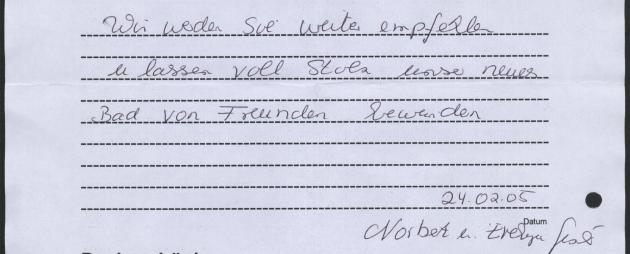 Wir werden Sie weiter empfehlen
u lassen voll Stolz unser neues
Bad von Freunden bewundern
24.02.05
Datum
Norbert u. Evelyn